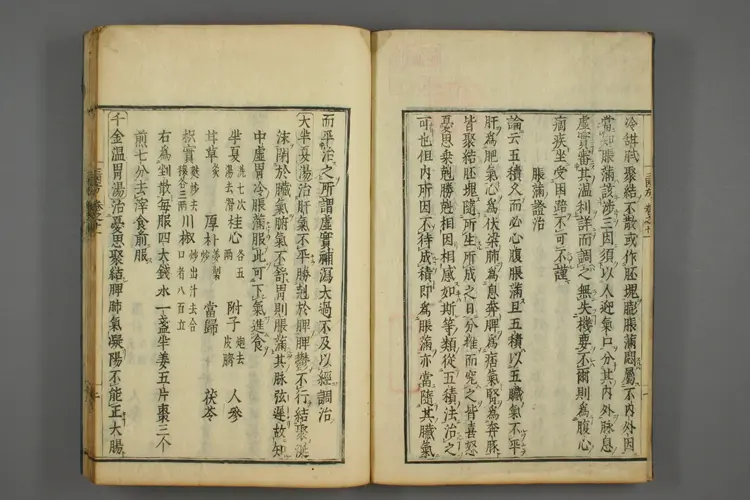 冷講弑聚結不散或作胚塊膨脹滿悶屬不内外因
當知脹滿該渉三因須以人迎氣口分其内外脉息
虚實審其温利詳而調之無失機要不爾則爲腹心
痼疾坐受困踣不可不謹
脹滿證治
論云五積久而必心腹脹滿且五積以五臟氣不平
肝爲肥氣心爲伏梁肺爲息奔脾爲痞氣腎爲奔豚
皆聚結胚塊隨所生所成之日分推而究之皆喜怒
憂思乗剋勝尅相因相感如斯等類從五積法治之
可也但内所因不待成積即爲脹滿亦當隨其臟氣
而平治之所謂虚實補瀉大過不及以經調治
大半夏湯治肝氣不平勝尅於脾脾鬱不行結聚涎
沫閉於臟氣腑氣不舒胃則脹滿其脉弦遲故知
中虚胃冷脹滿服此可下氣進食
半夏湯洗七次去滑 桂心各五兩 附子炮去皮臍 人參
甘草炙 厚朴姜製炒 當歸 茯苓
枳實麩炒去穰各三兩 川椒炒出汗去合口者八百立
右爲剉散毎服四大錢水一盞半姜五片棗三个
煎七分去滓食前服
千金温胃湯治憂思聚結脾肺氣凝陽不能正大腸